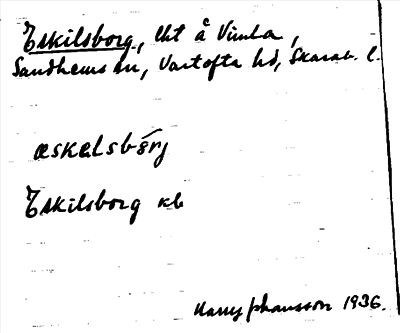 Eskilsborg, lht å Vimla,
Sandhems sn, Vartofta hd, Skarab. l.
æskɐlsbǒrj
Eskilsborg kb
Harry Johansson 1936.